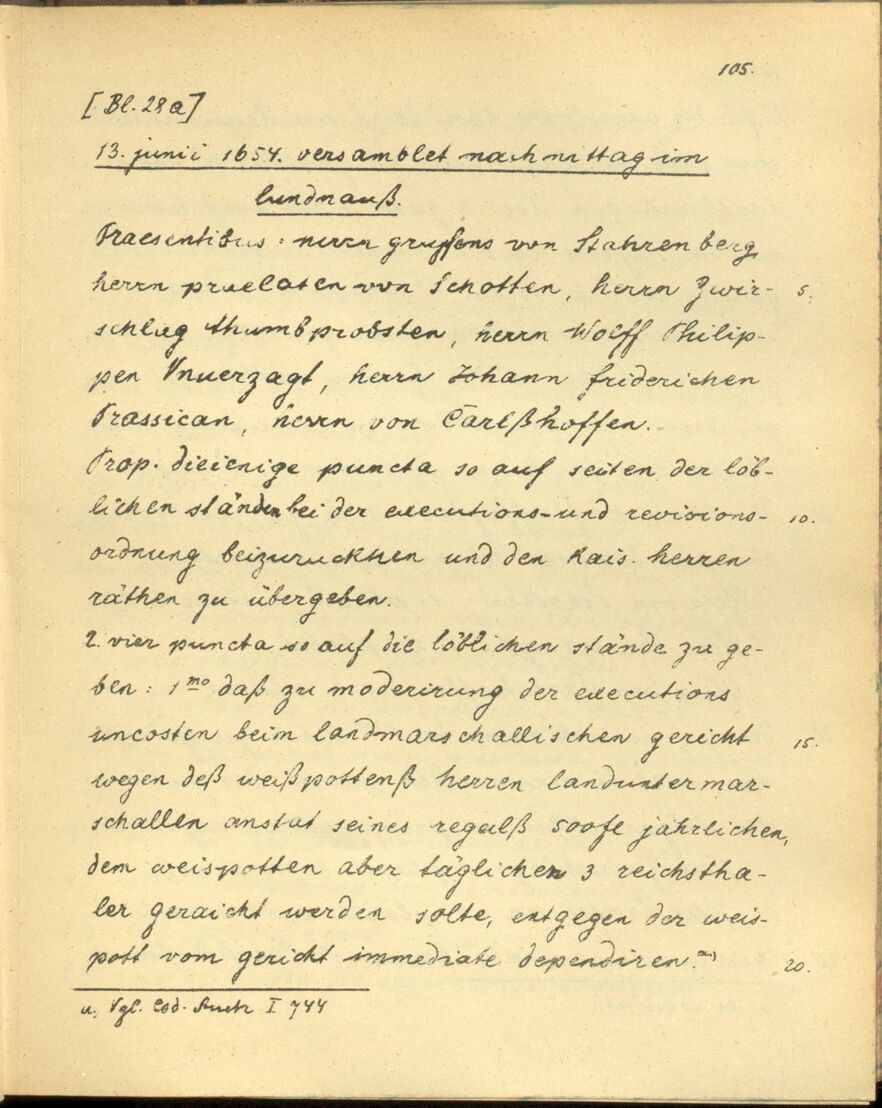 105.
[Bl. 28a]
13. junii 1654. versamblet nachmittag im
landhauß.
Praesentibus: herrn graffens von Stahrenberg,
herrn praelaten von Schotten, herrn Zwir- 5.
schlag thumbprobsten, herrn Wolff Philip-
pen Unverzagt, herrn Johann friderichen
Prassican, herrn von Carlßhoffen.
Prop. dieienige puncta so auf seiten der löb-
lichen ständen bei der executions- und revisions- 10.
ordnung beizuruckhen und den Kais. herren
räthen zu übergeben.
2. vier puncta so auf die löblichen stände zu ge-
ben: 1mo daß zu moderirung der executions
uncosten beim landmarschallischen gericht 15.
wegen deß weißpottenß herren landuntermar-
schallen anstat seines regalß 500 fl jährlichen,
dem weispotten aber täglichen 3 reichstha-
ler geraicht werden solte, entgegen der weis-
pott vom gericht immediate dependiren. a.) 20.
a., Vgl. Cod. Austr I 744